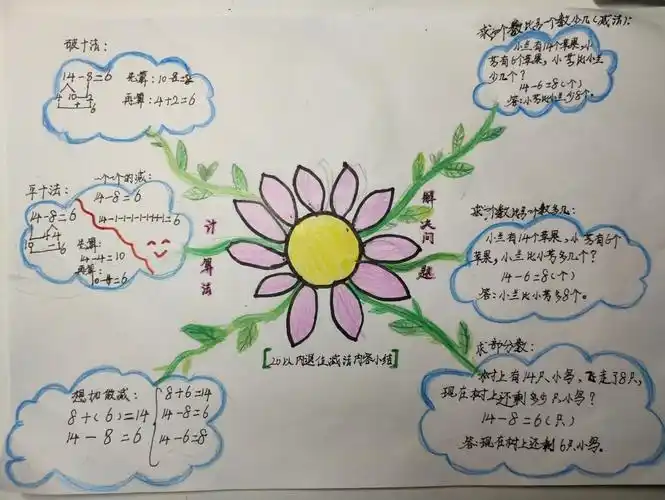 破十法：
14-8=6
4 10 2
+
6
先算：10-8=2
再算：4+2=6
平十法：
14-8=6
4 4
10 - 6
先算：
14-4=10
再算：
10-4=6
一个一个的减：
14-8=6
14-1-1-1-1-1-1-1-1=6
想加做减：
8+(6)=14
14-8=6
8+6=14
14-8=6
14-6=8
计算法
解决问题
【20以内退位减法内容小结】
求一个数比另一个数少几(减法)：
小兰有14个苹果,小
芳有6个苹果，小芳比小兰
少几个？
14-6=8(个)
答:小芳比小兰少8个。
求一个数比另一个数多几：
小兰有14个苹果,小芳有6个
苹果，小兰比小芳多几个？
14-6=8(个)
答:小兰比小芳多8个。
求部分数：
树上有14只小鸟，飞走了8只，
现在树上还剩多少只小鸟？
14-8=6(只)
答:现在树上还剩6只小鸟。